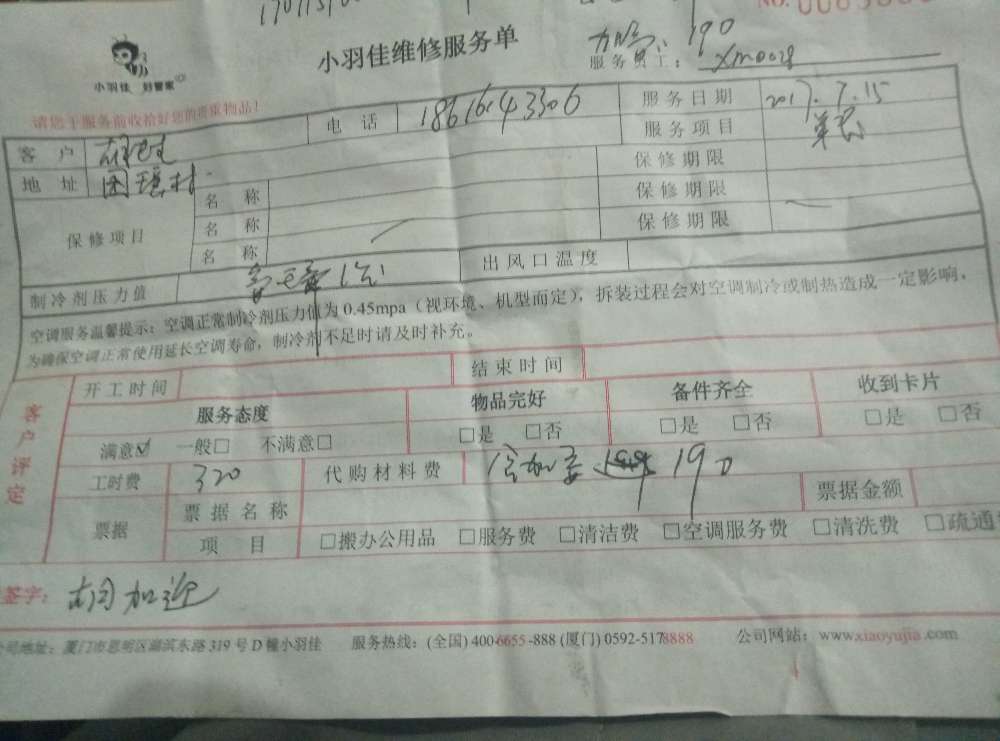 NO.
小羽佳维修服务单
190
小羽佳 好管家
服务员工: Xm0028
请您于服务前收拾好您的贵重物品!
客户 电话 18616143306 服务日期 2017.7.15
地址 服务项目
保修项目 名称 保修期限
名称 保修期限
名称 保修期限
制冷剂压力值 出风口温度
空调服务温馨提示:空调正常制冷剂压力值为0.45mpa(视环境、机型而定),拆装过程会对空调制冷或制热造成一定影响,
为确保空调正常使用延长空调寿命,制冷剂不足时请及时补充。
客户评定
开工时间 结束时间
服务态度 物品完好 备件齐全 收到卡片
满意☑ 一般□ 不满意□ □是 □否 □是 □否 □是 □否
工时费 320 代购材料费 190
票据 票据名称 票据金额
项目 □搬办公用品 □服务费 □清洁费 □空调服务费 □清洗费 □疏通
签字: 胡加迎
公司地址: 厦门市思明区湖滨东路319号D幢小羽佳 服务热线:(全国)400-6655-888 (厦门)0592-5178888 公司网站:www.xiaoyujia.com